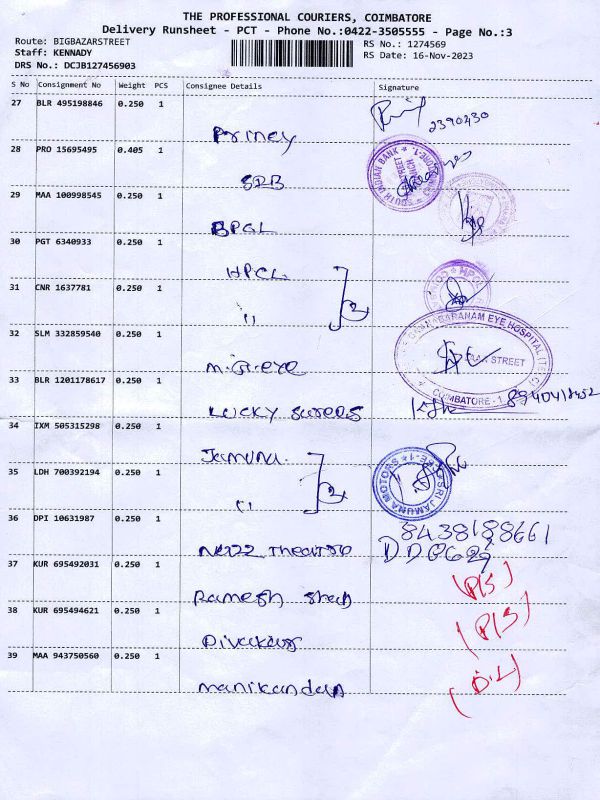 THE PROFESSIONAL COURIERS, COIMBATORE
Delivery Runsheet - PCT - Phone No.:0422-3505555 - Page No.:3
Route: BIGBAZARSTREET RS No.: 1274569
Staff: KENNADY RS Date: 16-Nov-2023
DRS No.: DCJB127456903
S No Consignment No Weight PCS Consignee Details Signature
27 BLR 495198846 0.250 1
2390430
28 PRO 15695495 0.405 1
SIB
SOUTH INDIAN BANK
29 MAA 100998545 0.250 1
BPCL
30 PGT 6340933 0.250 1
HPCL
HPCL
31 CNR 1637781 0.250 1
"
2
32 SLM 332859540 0.250 1
M.G.eye
EYE HOSPITAL
STREET
COIMBATORE - 1
33 BLR 1201178617 0.250 1
Lucky
34 IXM 505315298 0.250 1
Jamuna.
SRI JAMUNA MOTORS
35 LDH 700392194 0.250 1
"
2
36 DPI 10631987 0.250 1
8438188661
37 KUR 695492031 0.250 1
Ramesh Shah
(P/S)
38 KUR 695494621 0.250 1
Divakar
(P/S)
39 MAA 943750560 0.250 1
manikandan
(D.L)